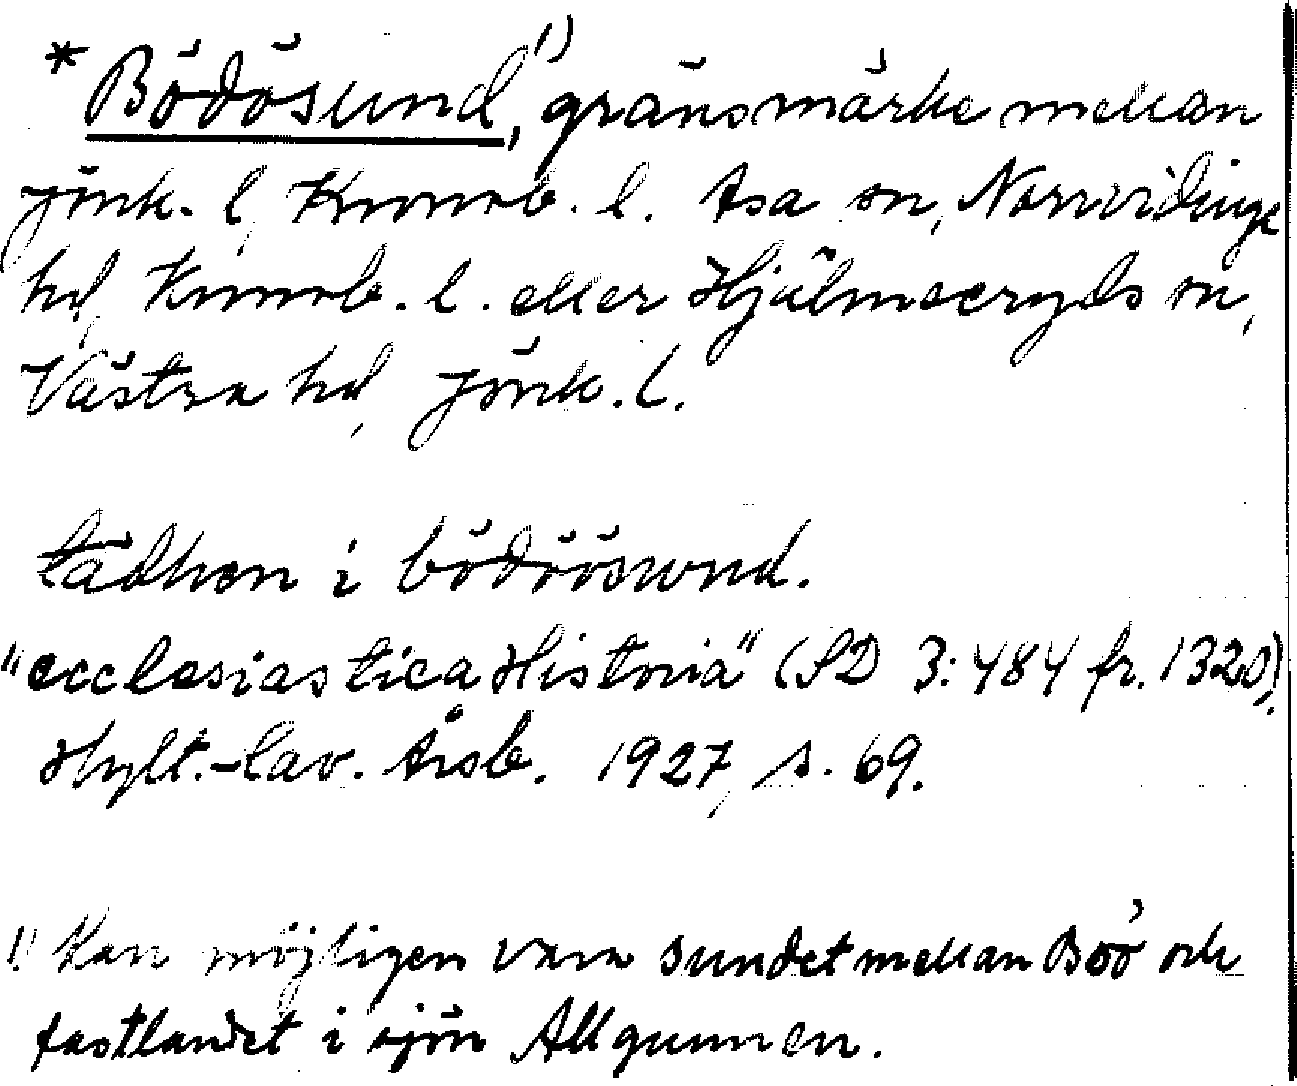 * Bödösund,¹⁾ gränsmärke mellan
Jönk. l, Kronob. l. Asa sn, Norrvidinge
hd, Kronob. l. eller Hjälmseryds sn,
Västra hd, Jönk. l.
tädhen i bödöösund.
"ecclesiastica Historia" (SD 3:484 fr. 1320),
Hylt.-Cav. Årsb. 1927, s. 69.
1) Kan möjligen vara sundet mellan Boö och
fastlandet i sjön Allgunnen.